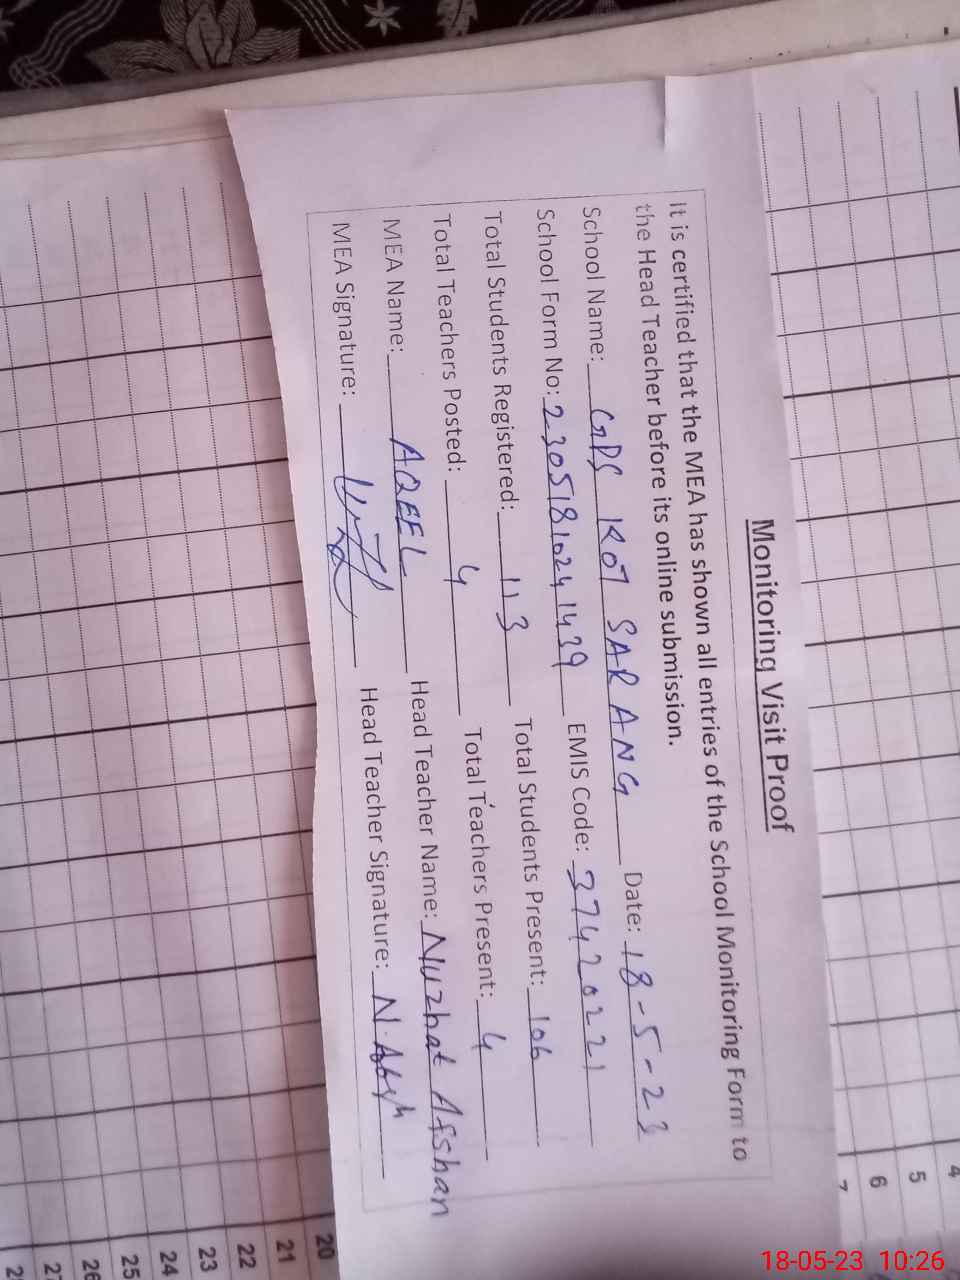 Monitoring Visit Proof
It is certified that the MEA has shown all entries of the School Monitoring Form to
the Head Teacher before its online submission.
School Name: GPS KOT SARANG Date: 18-5-23
School Form No: 2305181024 1439 EMIS Code: 37420221
Total Students Registered: 113 Total Students Present: 106
Total Teachers Posted: 4 Total Teachers Present: 4
MEA Name: AQEEL Head Teacher Name: Nuzhat Afshan
MEA Signature: Head Teacher Signature:
4
5
6
7
20
21
22
23
24
25
26
18-05-23 10:26